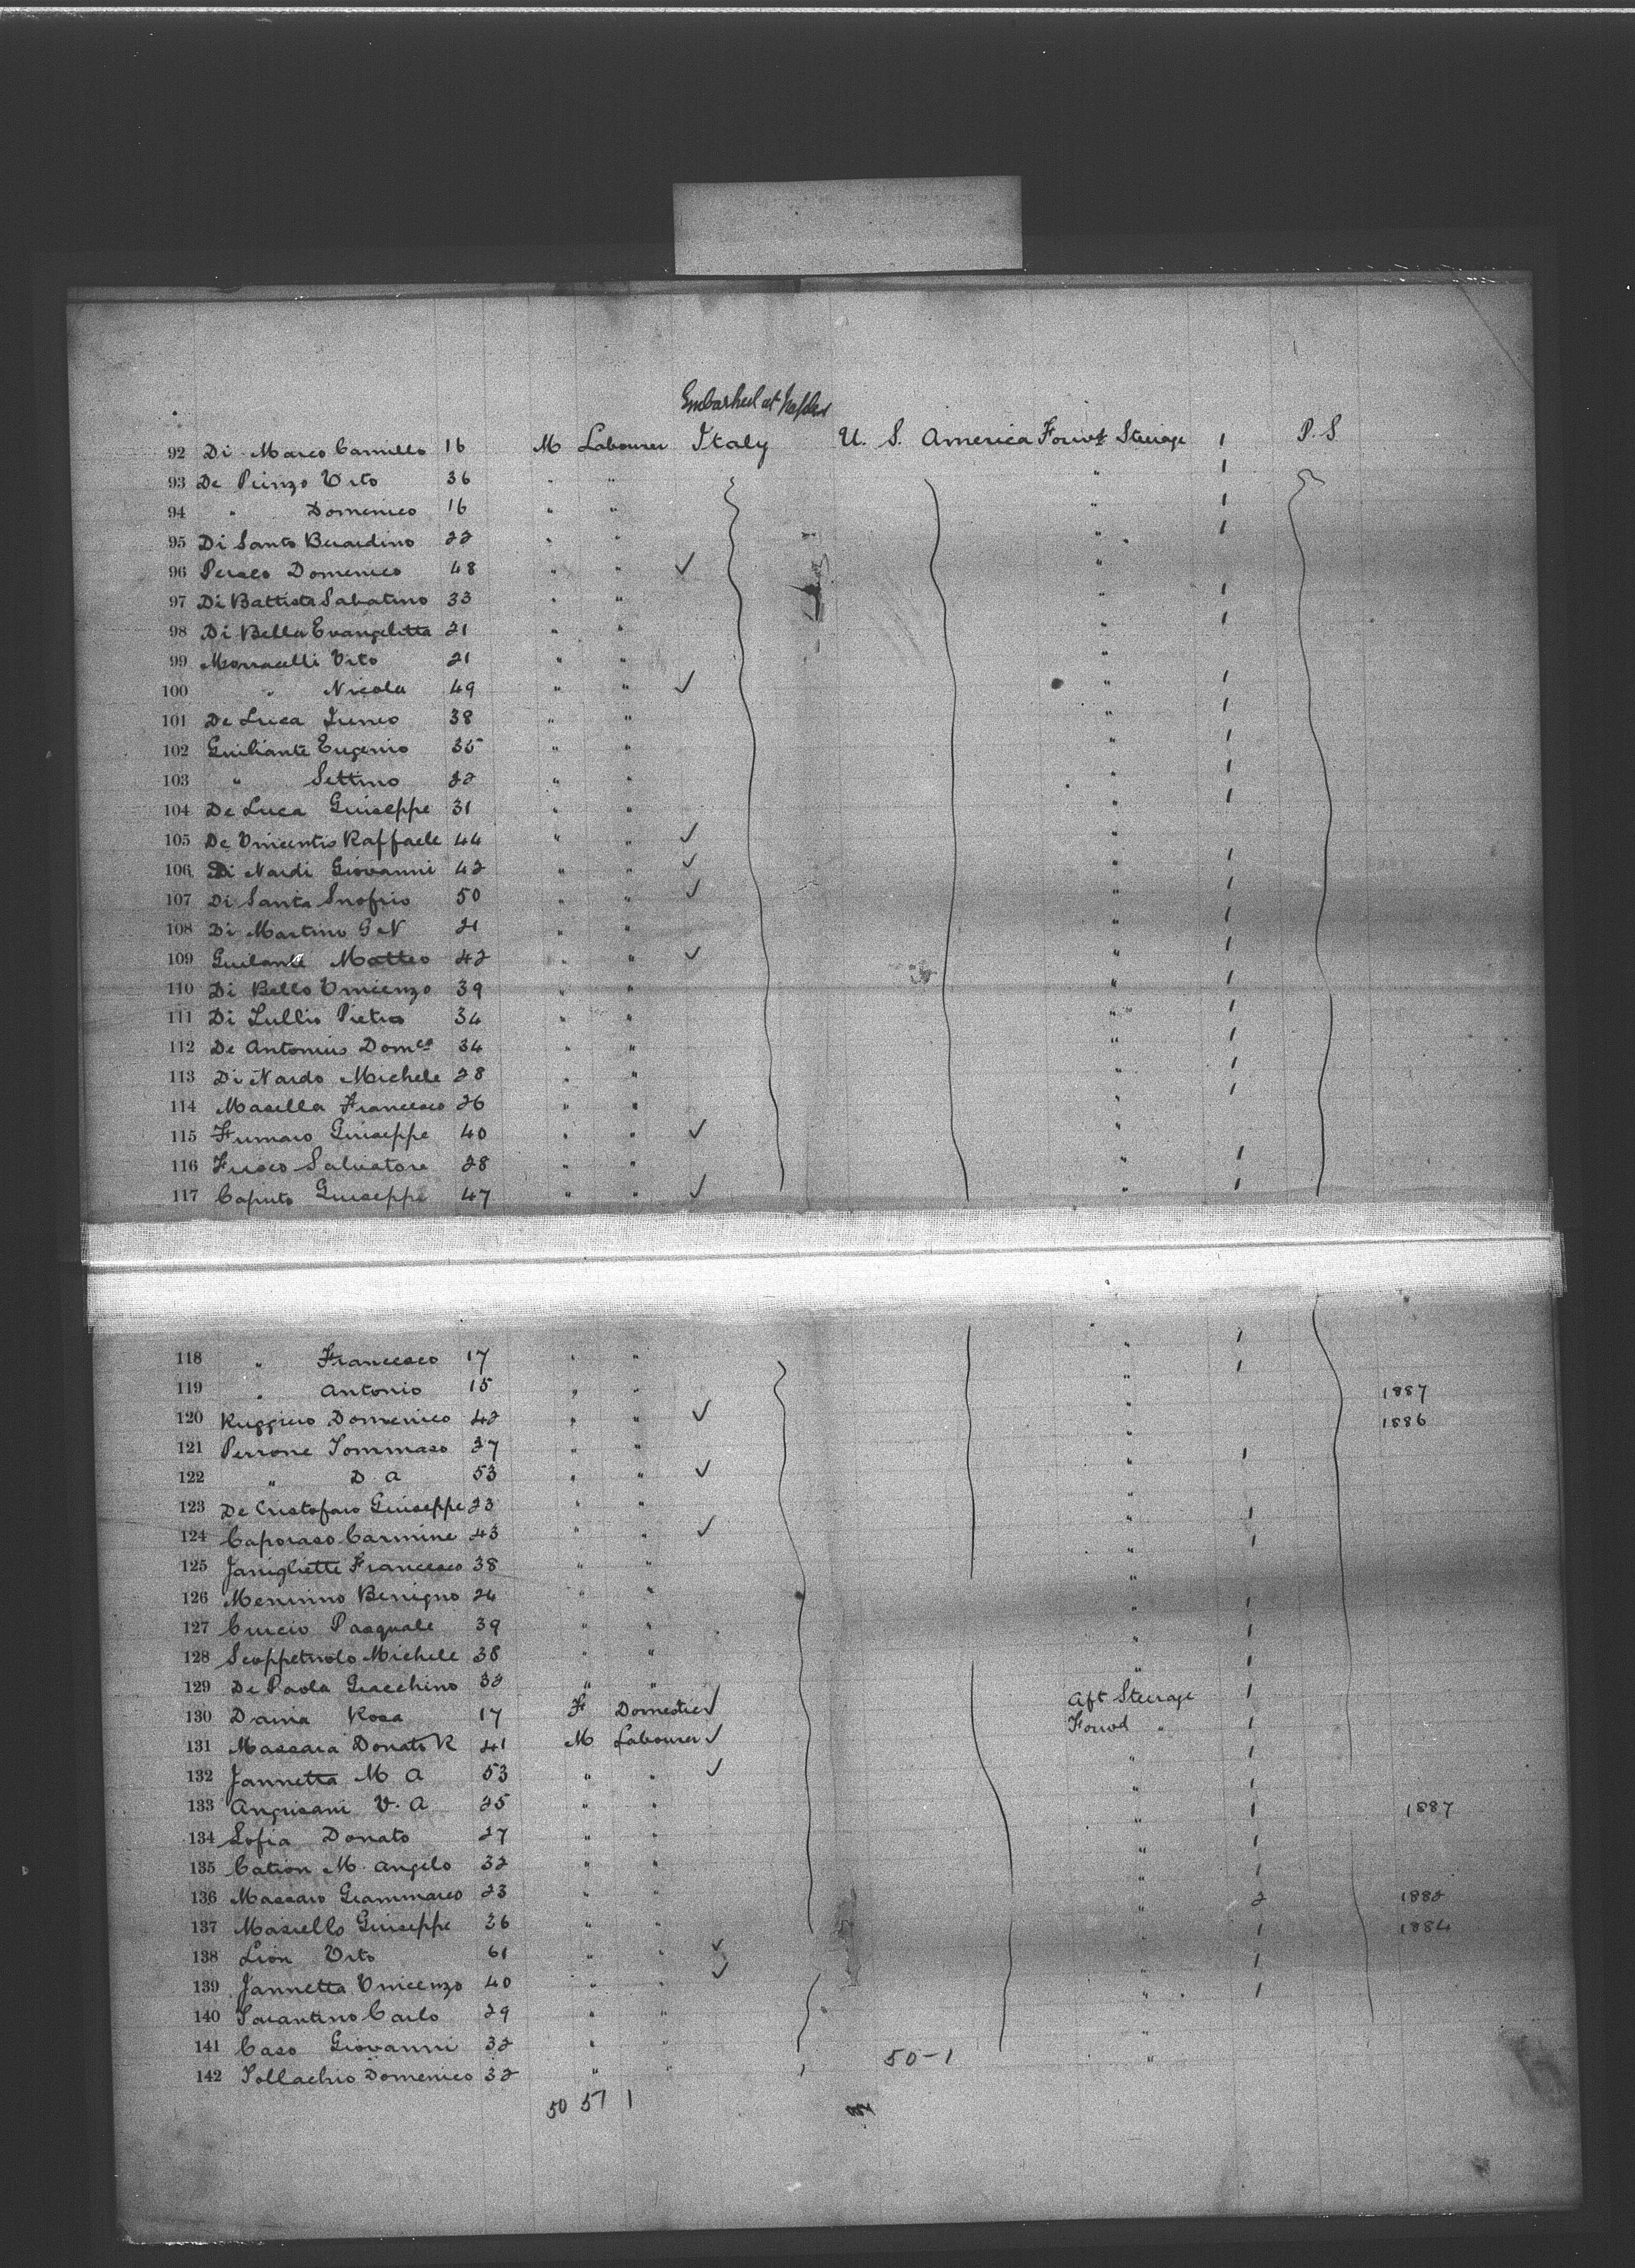 Embarked at Naples
92 Di Marco Camillo 16 M Labourer Italy U. S. America Forwd Steerage 1 P. S
93 De Prinzo Vito 36 " " " 1
94 " Domenico 16 " " " 1
95 Di Santo Berardino 22 " " " 1
96 Domenico 48 " " ✓ "
97 Di Battista Sabatino 33 " " " 1
98 Di Bella Evangelitta 21 " " " 1
99 Monacelli Vito 21 " " "
100 " Nicola 49 " " ✓ " 1
101 De Luca 38 " " " 1
102 Guilianti Eugenio 35 " " " 1
103 " Settino 32 " " " 1
104 De Luca Guiseppe 31 " " " 1
105 De Vincentis Raffaele 44 " " ✓ "
106 Di Nardi Giovanni 42 " " ✓ " 1
107 Di Santa Snofrio 50 " " ✓ " 1
108 Di Martino G N 21 " " " 1
109 Guilanti Matteo 42 " " ✓ " 1
110 Di Bello Vincenzo 39 " " " 1
111 Di Lullio Pietro 34 " " " 1
112 De Antonius Domco 34 " " " 1
113 Di Nardo Michele 28 " " " 1
114 Masella Francesco 26 " " " 1
115 Fumaro Guiseppe 40 " " ✓ "
116 Fusco Salvatore 28 " " " 1
117 Caputo Guiseppe 47 " " ✓ " 1
118 " Francesco 17 " " " 1
119 " Antonio 15 " " " 1 1887
120 Ruggiero Domenico 42 " " ✓ " 1886
121 Perrone Tommaso 37 " " " 1
122 " D A 53 " " ✓ "
123 De Cristofaro Guiseppe 23 " " " 1
124 Caporaso Carmine 43 " " ✓ " 1
125 Janigliette Francesco 38 " " "
126 Meninno Benigno 24 " " " 1
127 Curcio Pasquale 39 " " " 1
128 Scoppetuolo Michele 38 " " " 1
129 De Paola Giacchino 32 " " 1
130 Daina Rosa 17 F Domestic ✓ Aft Steerage 1
131 Massara Donato R 41 M Labourer ✓ Forwd " 1
132 Jannetta M A 53 " " ✓ " 1
133 Angrisani V. A 25 " " " 1 1887
134 Sofia Donato 27 " " " 1
135 Cation M. Angelo 32 " " " 1
136 Massaro Giammarco 23 " " " 2 1882
137 Masiello Guiseppe 26 " " " 1 1884
138 Lion Vito 61 " " ✓ " 1
139 Jannetta Vincenzo 40 " " ✓ " 1
140 Tarantino Carlo 29 " " "
141 Caso Giovanni 32 " " 50-1 "
142 Tollachio Domenico 32 " " "
50 51 1